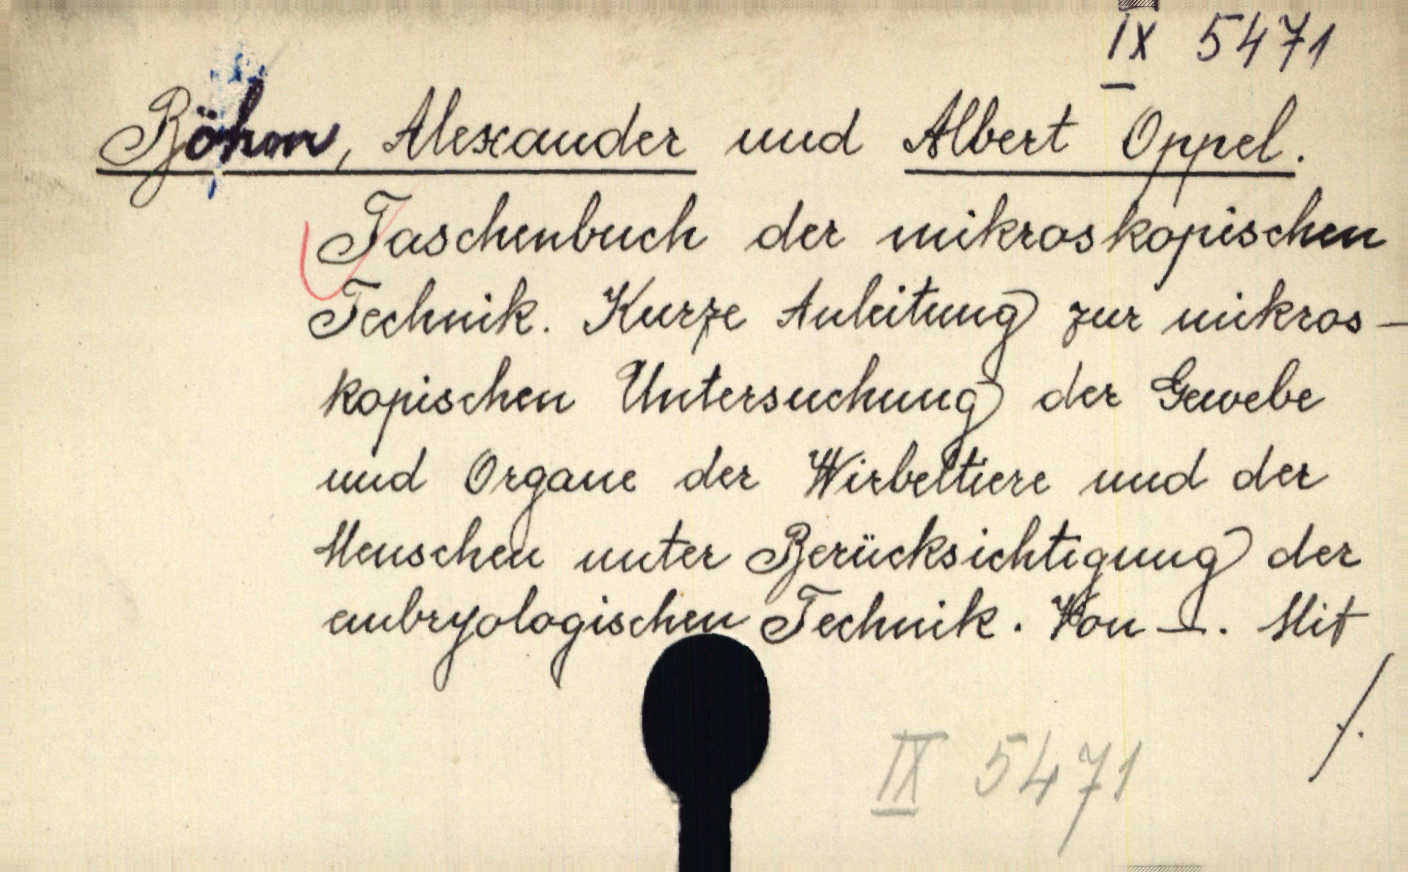 IX 5471
Böhm, Alexander und Albert Oppel.
Taschenbuch der mikroskopischen
Technik. Kurze Anleitung zur mikros-
kopischen Untersuchung der Gewebe
und Organe der Wirbeltiere und der
Menschen unter Berücksichtigung der
embryologischen Technik. Von —. Mit
/.
IX 5471